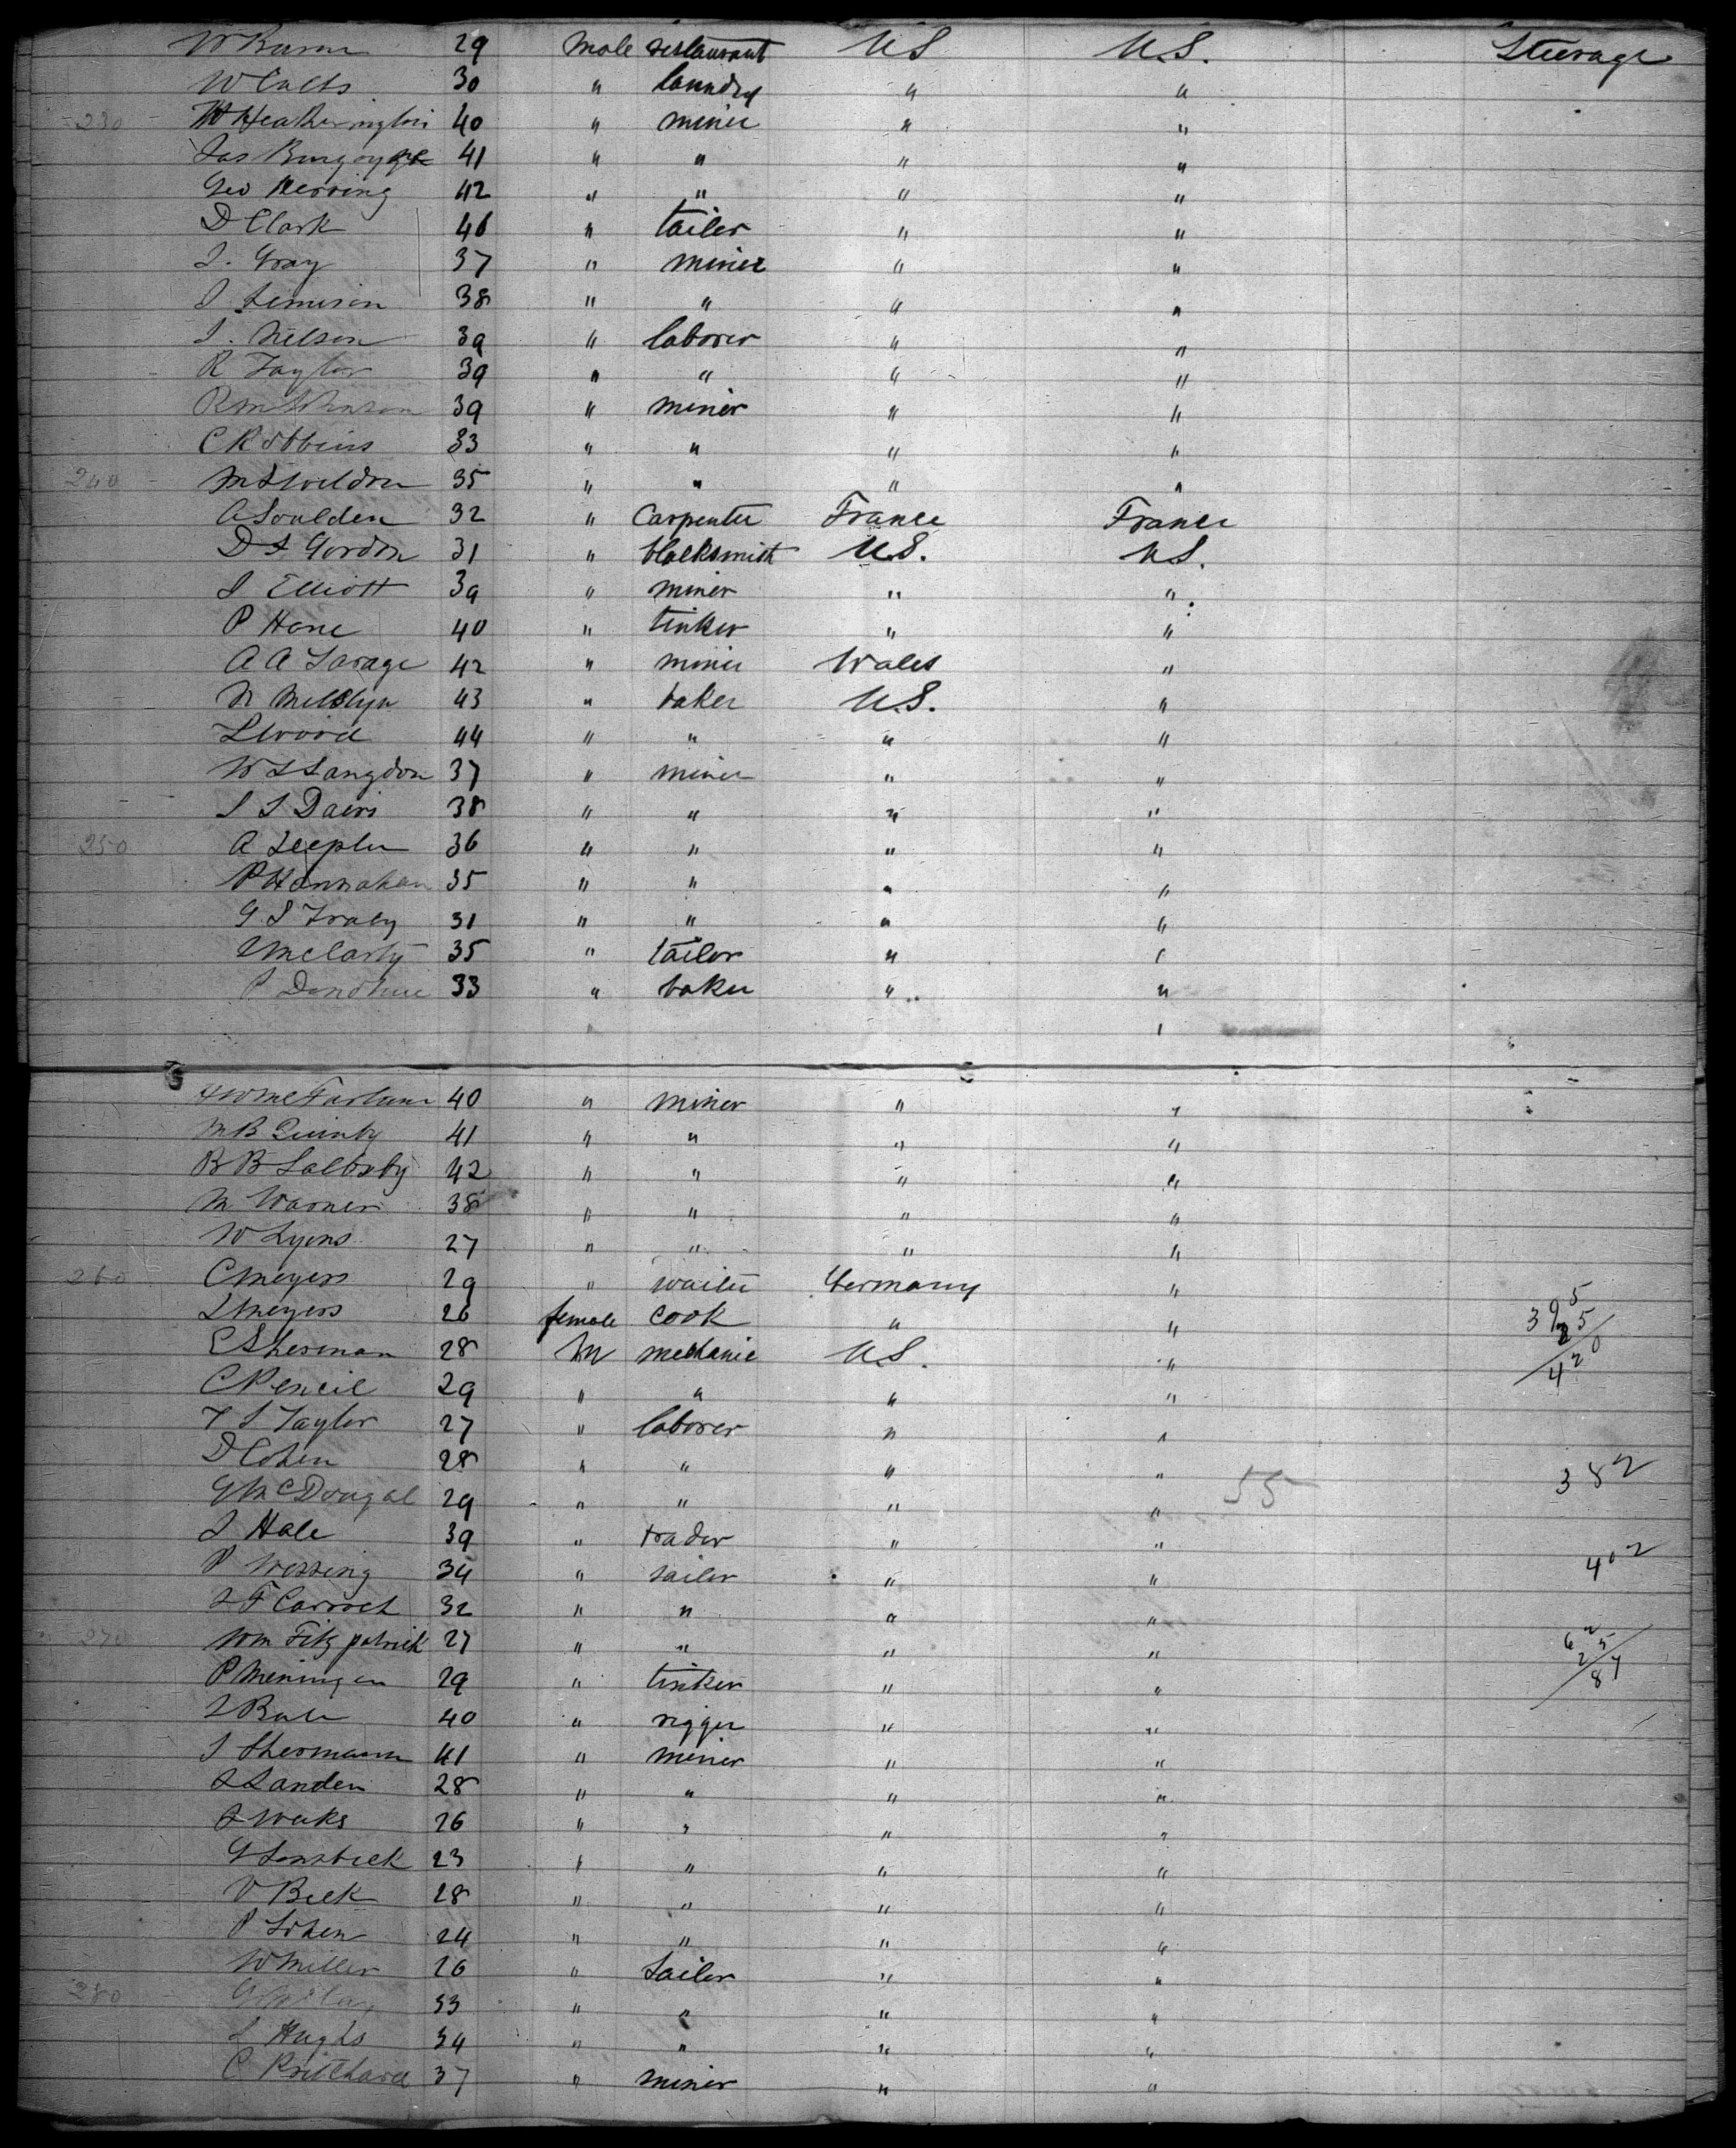 W 29 Male restaurant US U.S. Steerage
W Calts 30 " laundry " "
230 W Heatherington 40 " miner " "
Jas Burgoyne 41 " " " "
Geo Herring 42 " " " "
D Clark 46 " tailer " "
J. Gray 37 " miner " "
J Jemison 38 " " " "
J. Nelson 39 " laborer " "
R Taylor 39 " " " "
39 " miner " "
C Robbins 33 " " " "
240 M Sheldon 35 " " " "
A Soulden 32 " Carpenter France France
D S Gordon 31 " blacksmith U.S. U.S.
J Elliott 39 " miner " "
P Hone 40 " tinker " "
A A Savage 42 " miner Wales "
N 43 " baker U.S. "
L Wood 44 " " " "
W L Langdon 37 " miner " "
J S Davis 38 " " " "
250 A Teepler 36 " " " "
P Hannahan 35 " " " "
G S Traly 31 " " " "
McCarty 35 " tailor " "
P Donohue 33 " baker " "
H W McFarlane 40 " miner " "
M B Quinby 41 " " " "
B B 42 " " " "
M Warner 38 " " " "
W Lyons 27 " " " "
260 C Meyers 29 " waiter Germany "
L Meyers 26 female cook " "
395
25
420
E Sherman 28 M mechanic U.S. "
C Pencil 29 " " " "
T S Taylor 27 " laborer " "
D Cohen 28 " " " " 382
G McDougal 29 " " " " 55
J Hale 39 " trader " "
P Wessing 34 " sailer " " 402
J F Carroch 32 " " " "
270 Wm Fitzpatrick 27 " " " "
62
25
87
P Meningen 29 " tinker " "
J 40 " rigger " "
J Shermann 41 " miner " "
J Landen 28 " " " "
J Weeks 26 " " " "
G Lonsbeck 23 " " " "
V Beck 28 " " " "
P Cohen 24 " " " "
W Miller 26 " Sailer " "
280 33 " " " "
J Hughs 34 " " " "
C Pritchard 37 " miner " "